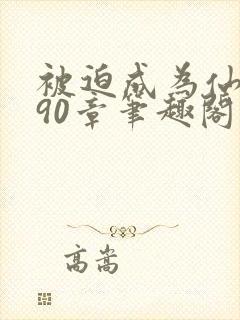 被迫成为仙
90章笔趣阁
高嵩